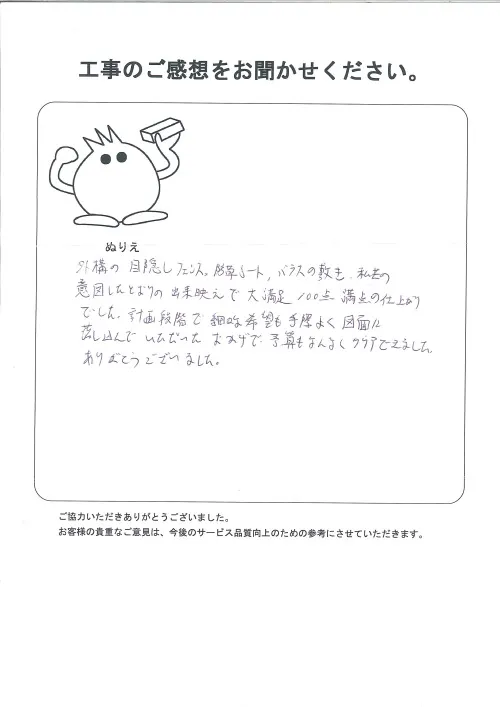 工事のご感想をお聞かせください。
ぬりえ
外構の目隠しフェンス。防草シート,バラスの敷も、私共の
意図したとおりの出来映えで大満足 100点満点の仕上がり
でした。計画段階で細的希望も手際よく図面に
落し込んでいただいたおかげで予算もなんなくクリアできました。
ありがとうございました。
ご協力いただきありがとうございました。
お客様の貴重なご意見は、今後のサービス品質向上のための参考にさせていただきます。